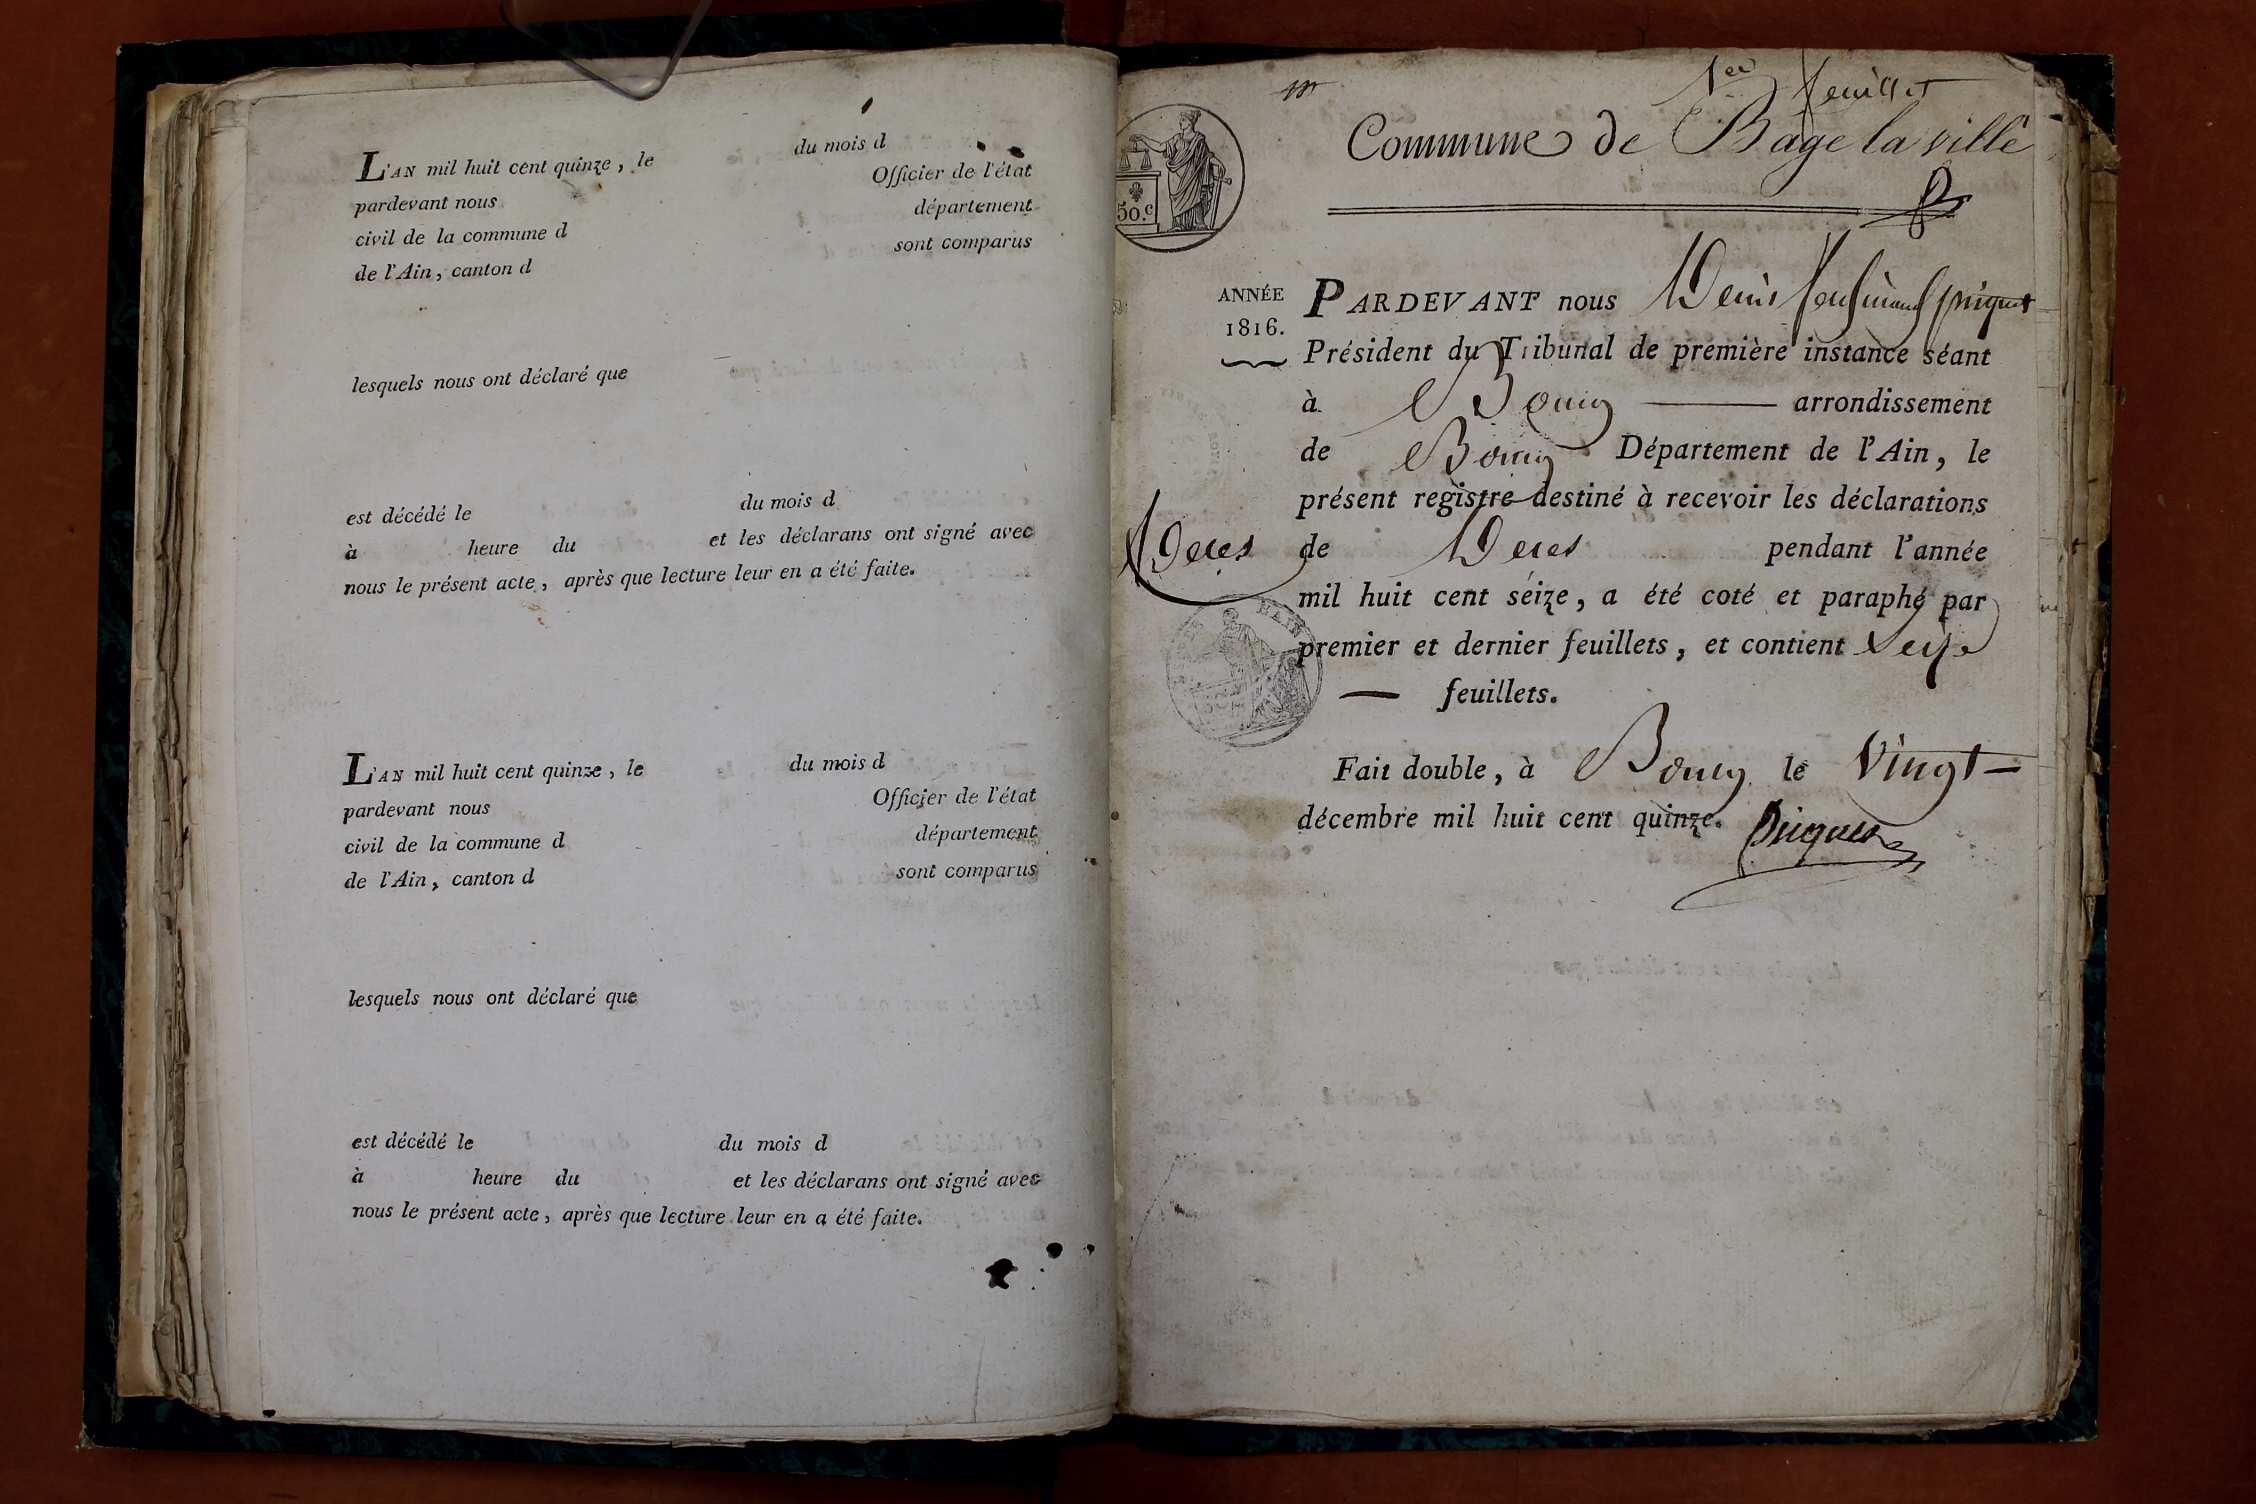 L'AN mil huit cent quinze, le du mois d
pardevant nous Officier de l'état
civil de la commune d département
de l'Ain, canton d sont comparus
lesquels nous ont déclaré que
est décédé le du mois d
à heure du et les déclarans ont signé avec
nous le présent acte, après que lecture leur en a été faite.
L'AN mil huit cent quinze, le du mois d
pardevant nous Officier de l'état
civil de la commune d département
de l'Ain, canton d sont comparus
lesquels nous ont déclaré que
est décédé le du mois d
à heure du et les déclarans ont signé avec
nous le présent acte, après que lecture leur en a été faite.
1er feuillet
Commune de Bage la ville
50.c
ANNÉE
1816.
PARDEVANT nous Denis ferdinand piquet
Président du Tribunal de première instance séant
à Bourg arrondissement
de Bourg Département de l'Ain, le
présent registre destiné à recevoir les déclarations
Deces
de Deces pendant l'année
mil huit cent séize, a été coté et paraphé par
premier et dernier feuillets, et contient seize
feuillets.
Fait double, à Bourg le vingt
décembre mil huit cent quinze.
Piquet